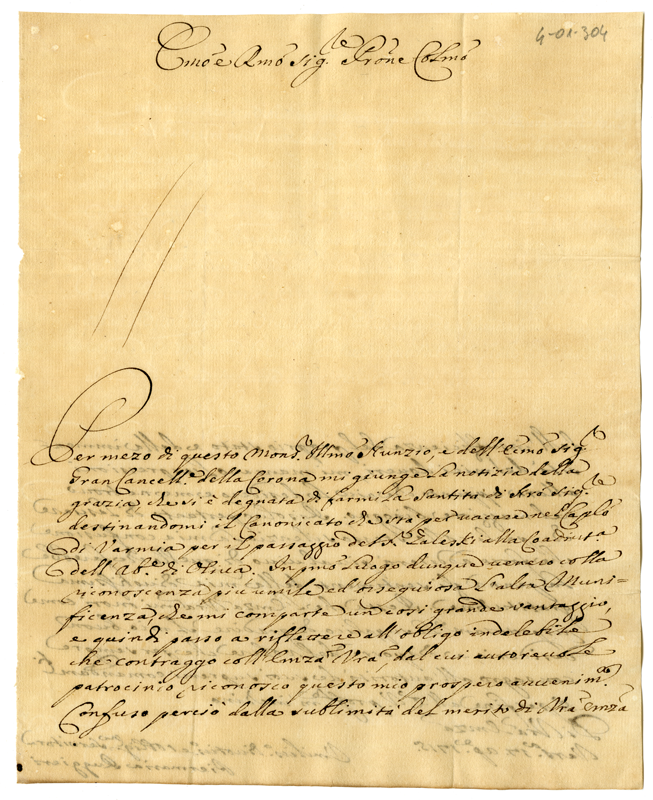 4-01-304
Emo e Rmo Sig.re Prone Colmo
Per mezo di questo Mons.r Illmo Nunzio, e dell'Emo Sig.r
Gran Cancell.e della Corona mi giunge la notizia della
grazia che si è degnata di farmi la Santità di Nro Sig.re
destinandomi il Canonicato che sta per vacare nel Caplo
di Varmia per il passaggio del S.r Zaleski alla Coadiut.a
dell'Ab.e di Oliva. In pmo luogo dunque venero colla
riconoscenza più umile ed ossequiosa l'alta Muni=
ficenza, che mi comparte un così grande vantaggio,
e quindi passo a riflettere all'obligo indelebile
che contraggo coll'Emza Vra, dal cui autorevole
patrocinio riconosco questo mio prospero avvenim.to
Confuso perciò dalla sublimità del merito di Vra Emza